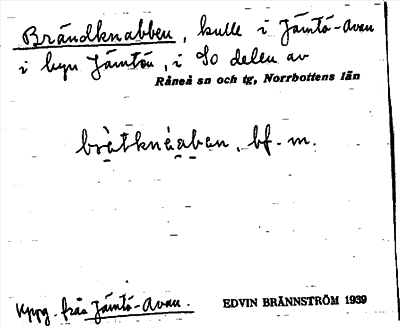 Brändknabben, kulle i Jämtö-Avan
i byn Jämtön, i So delen av
Råneå sn och tg, Norrbottens län
bràtknáaban, bf. m.
Uppg. från Jämtö-Avan.
EDVIN BRÄNNSTRÖM 1939